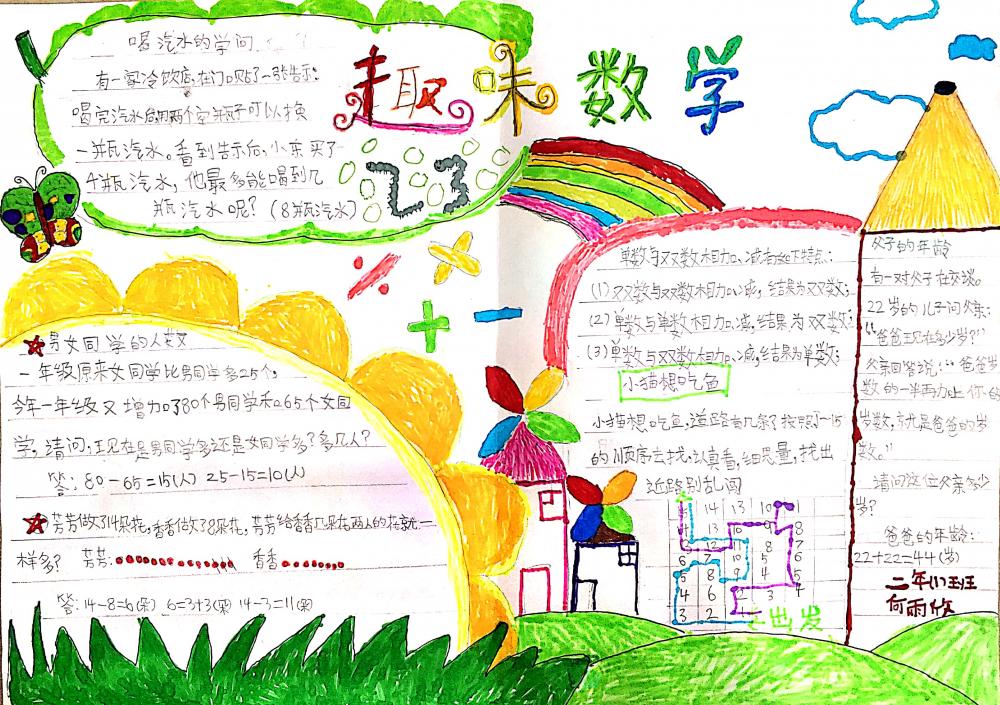 喝汽水的学问
有一家冷饮店,在门口贴了一张告示:
喝完汽水后用两个空瓶子可以换
一瓶汽水。看到告示后,小东买了
4瓶汽水,他最多能喝到几
瓶汽水呢?(8瓶汽水)
趣味数学
23
男女同学的人数
一年级原来女同学比男同学多25个,
今年一年级又增加了80个男同学和65个女同
学,请问,现在是男同学多还是女同学多?多几人?
答:80-65=15(人) 25-15=10(人)
芳芳做了14朵花,香香做了8朵花,芳芳给香香几朵花两人的花就一
样多? 芳芳: 香香:
答:14-8=6(朵) 6=3+3(朵) 14-3=11(朵)
单数与双数相加、减有如下特点:
(1)双数与双数相加、减,结果为双数;
(2)单数与单数相加、减,结果为双数;
(3)单数与双数相加、减,结果为单数;
小猫想吃鱼
小猫想吃鱼,道路有几条?按照1~15
的顺序去找,认真看,细思量,找出
近路别乱闯
14 13 10
13 10 9 8
12 11 8 7
6 7 10 5 6
5 8 9 4 5
4 6 2 3 4
3 2
出发
父子的年龄
有一对父子在交谈。
22岁的儿子问父亲:
“爸爸现在多少岁?”
父亲回答说:“爸爸岁
数的一半再加上你的
岁数,就是爸爸的岁
数。”
请问这位父亲多少
岁?
爸爸的年龄:
22+22=44(岁)
二年(1)班
何雨